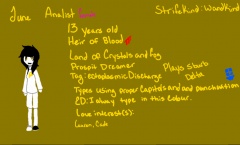 June Analist StrifeKind: WandKind
13 years old
Heir of Blood
Land of Crystals and Fog
Prospit Dreamer
Tag: ectodaemicDischarge
Plays sburb Delta
Types using proper Capitals and and punctuation
ED: I always type in this colour.
Love interest(s):